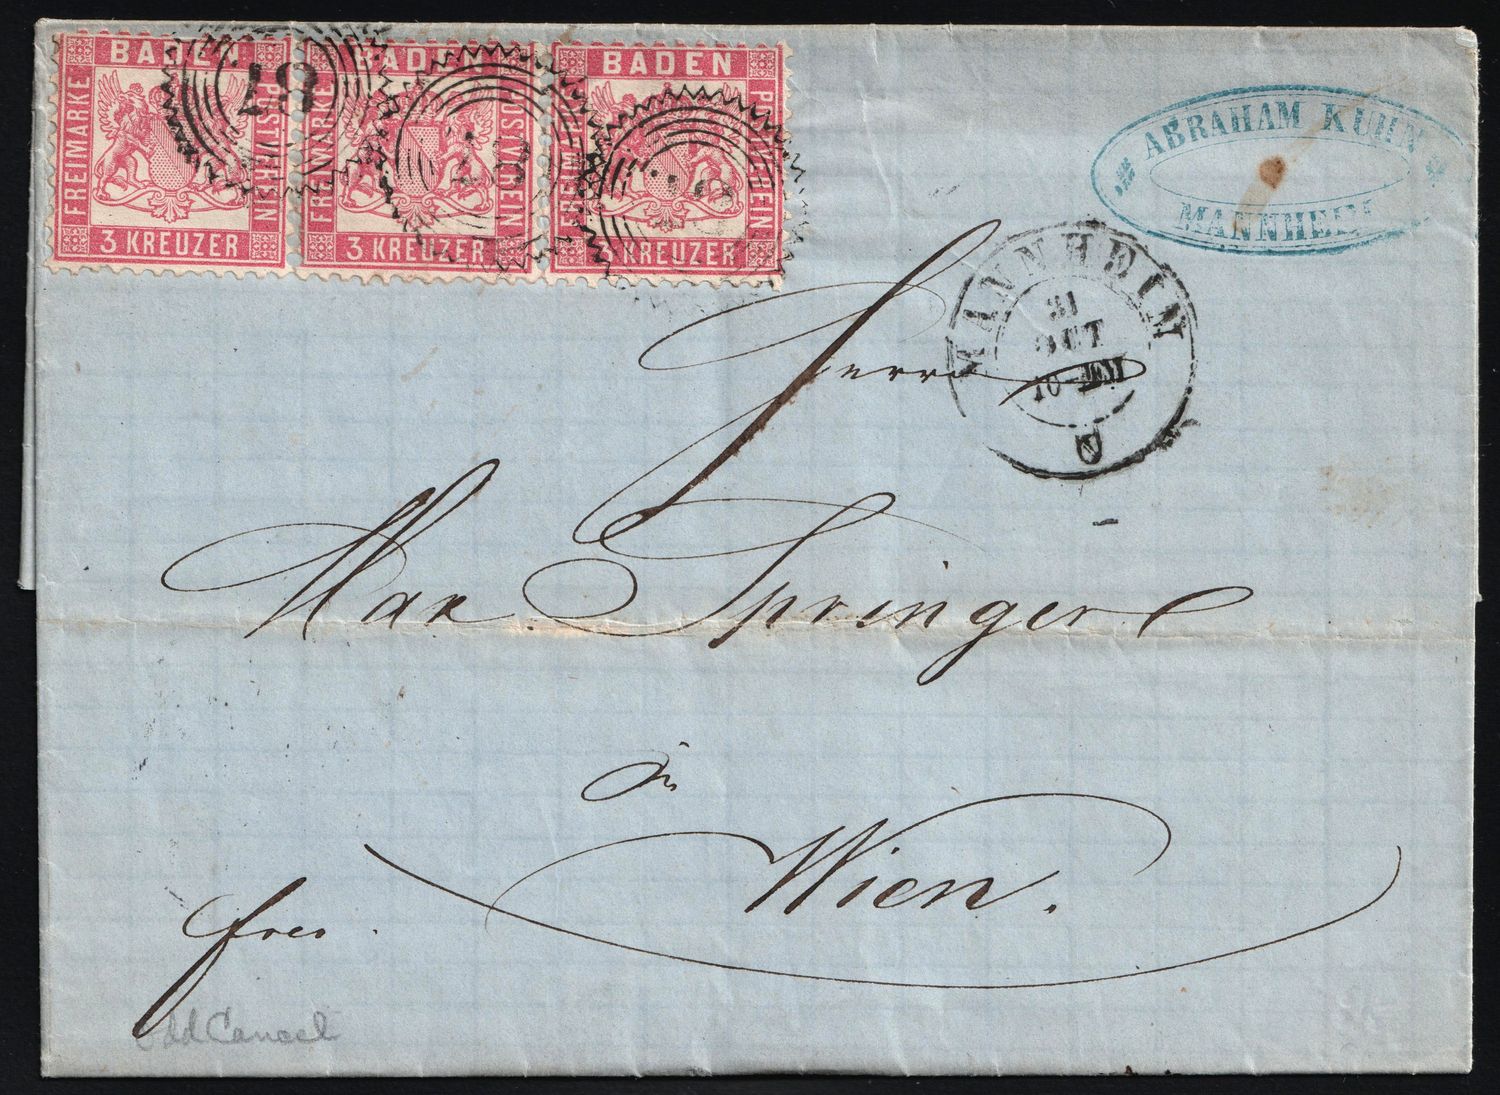 BADEN
FREIMARKE
POSTVEREIN
3 KREUZER
87
BADEN
FREIMARKE
POSTVEREIN
3 KREUZER
87
BADEN
FREIMARKE
POSTVEREIN
3 KREUZER
ABRAHAM KUHN
MANNHEIM
MANNHEIM
31
OCT
Herrn
Max Springer
in
Wien.
frco.
Odd Cancel